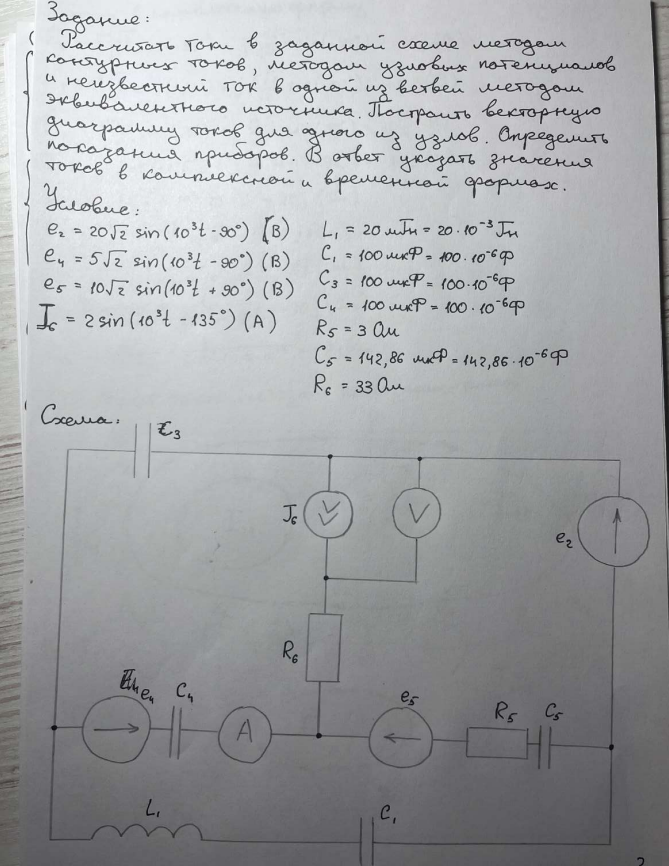 Задание:
Рассчитать токи в заданной схеме методом
контурных токов, методом узловых потенциалов
и неизвестный ток в одной из ветвей методом
эквивалентного источника. Построить векторную
диаграмму токов для одного из узлов. Определить
показания приборов. В ответ указать значения
токов в комплексной и временной формах.
Условие:
e₂ = 20√2 sin(10³t - 90°) (В)
e₄ = 5√2 sin(10³t - 90°) (В)
e₅ = 10√2 sin(10³t + 90°) (В)
J₆ = 2 sin(10³t - 135°) (А)
L₁ = 20 мГн = 20·10⁻³ Гн
C₁ = 100 мкФ = 100·10⁻⁶Ф
C₃ = 100 мкФ = 100·10⁻⁶Ф
C₄ = 100 мкФ = 100·10⁻⁶Ф
R₅ = 3 Ом
C₅ = 142,86 мкФ = 142,86·10⁻⁶Ф
R₆ = 33 Ом
Схема:
C₃
J₆
V
e₂
R₆
e₄
C₄
A
e₅
R₅
C₅
L₁
C₁